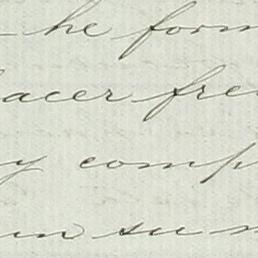 he form
acer fre
y comp
in su